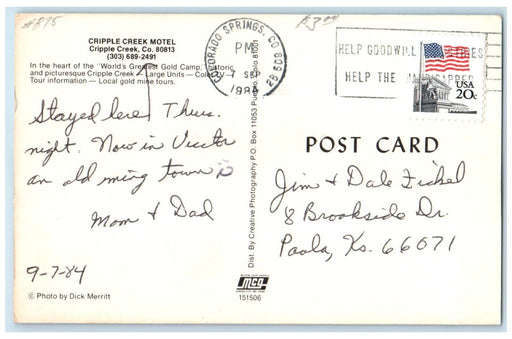 #895
$3.00
CRIPPLE CREEK MOTEL
Cripple Creek, Co. 80813
(303) 689-2491
In the heart of the "World's Greatest Gold Camp," historic
and picturesque Cripple Creek – Large Units –
Tour information – Local gold mine tours.
Stayed here Thurs.
night. Now in Victor
an old ming town
Mom & Dad
9-7-84
© Photo by Dick Merritt
Dist. By Creative Photography P.O. Box 11053 Pueblo, 81001
MCG
151506
COLORADO SPRINGS, CO
PM
7 SEP
1984
HELP GOODWILL
HELP THE HANDICAPPED
USA
20c
POST CARD
Jim & Dale Fickel
8 Brookside Dr.
Paola, Ks. 66071